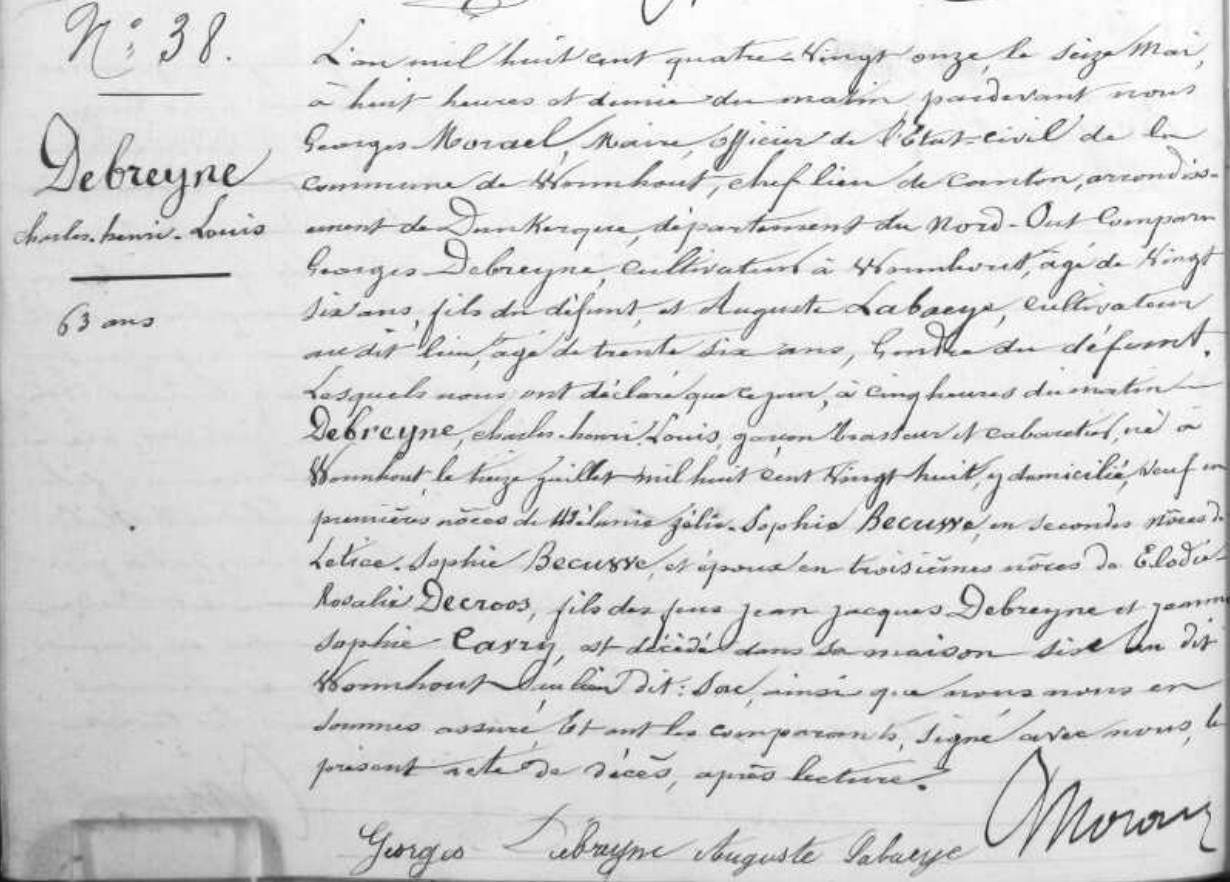 N° 38.
Debreyne
charles-henri-Louis
63 ans
L'an mil huit cent quatre-Vingt onze, le seize Mai,
à huit heures et demie du matin, pardevant nous
Georges Morael, Maire, officier de l'Etat-civil de la
commune de Wormhout, chef lieu de canton, arrondiss-
ement de Dunkerque, département du Nord - Ont Comparu
Georges Debreyne, cultivateur à Wormhout, âgé de Vingt
six ans, fils du défunt, et Auguste Labaeye, cultivateur
au dit lieu, âgé de trente six ans, Gendre du défunt.
Lesquels nous ont déclaré que ce jour, à cinq heures du matin
Debreyne, charles-henri-Louis, garçon brasseur et cabaretier, né à
Wormhout, le treize Juillet mil huit cent Vingt huit, y domicilié, Veuf en
premières nôces de Mélanie Sophie Becuwe, en secondes nôces de
Letice-Sophie Becuwe, et époux en troisièmes nôces de Elodie
Rosalie Decroos, fils des feus jean jacques Debreyne et jeanne
Sophie Carry, est décédé dans sa maison sise au dit
Wormhout au lieu dit: , ainsi que nous nous en
sommes assuré Et ont les comparants, signé avec nous, le
présent acte de décès, après lecture.
Georges Debreyne Auguste Labaeye GMorael